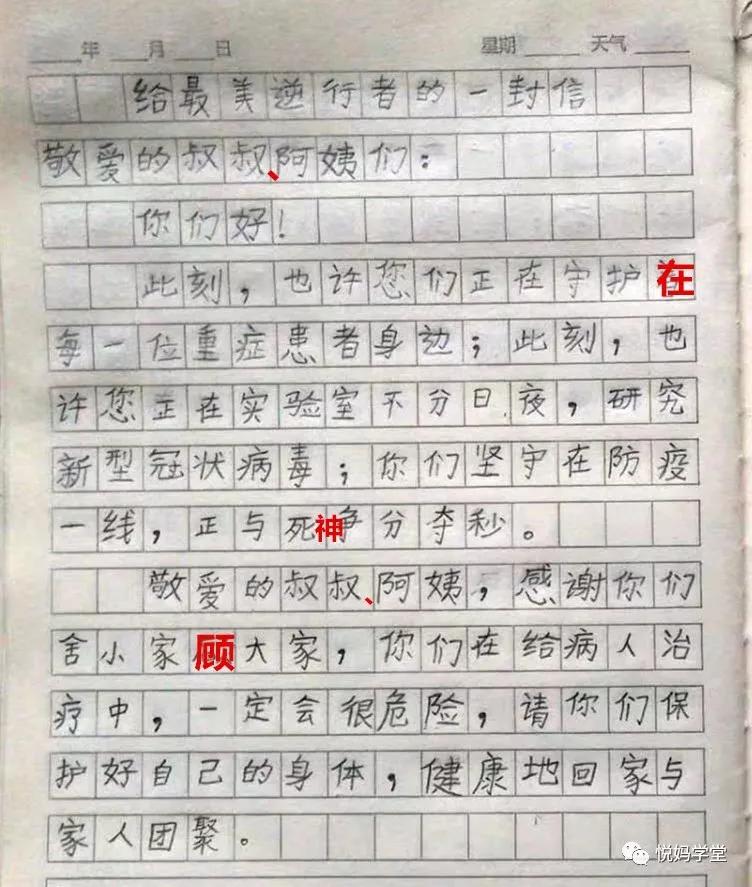 年 月 日 星期 天气
给最美逆行者的一封信
敬爱的叔叔、阿姨们：
你们好！
此刻，也许您们正在守护在
每一位重症患者身边；此刻，也
许您正在实验室不分日夜，研究
新型冠状病毒；你们坚守在防疫
一线，正与死神争分夺秒。
敬爱的叔叔、阿姨，感谢你们
舍小家顾大家，你们在给病人治
疗中，一定会很危险，请你们保
护好自己的身体，健康地回家与
家人团聚。
悦妈学堂